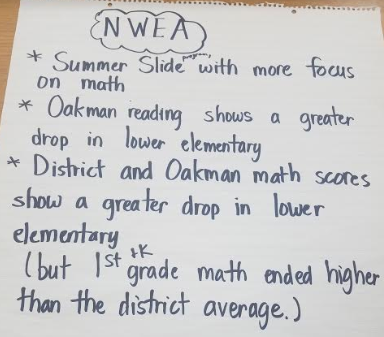 NWEA
* Summer Slide with more focus
on math
* Oakman reading shows a greater
drop in lower elementary
* District and Oakman math scores
show a greater drop in lower
elementary
(but 1st +K grade math ended higher
than the district average.)